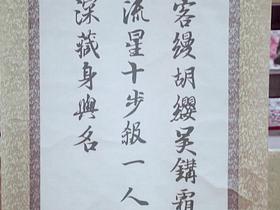 客縵胡纓吳霜
流星十步殺一人
深藏身與名